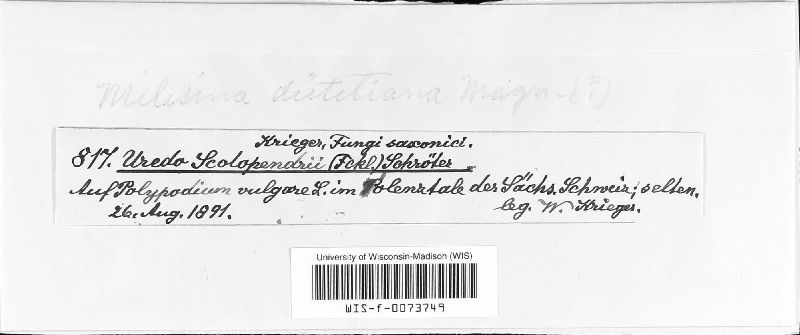 Milesina dietetiana Magn. (?)
Krieger, Fungi saxonici.
817. Uredo Scolopendrii (Fckl.) Schröter
Auf Polypodium vulgare L. im Polenztale der Sächs. Schweiz; selten.
26. Aug. 1891. leg. W. Krieger.
University of Wisconsin-Madison (WIS)
WIS-f-0073749